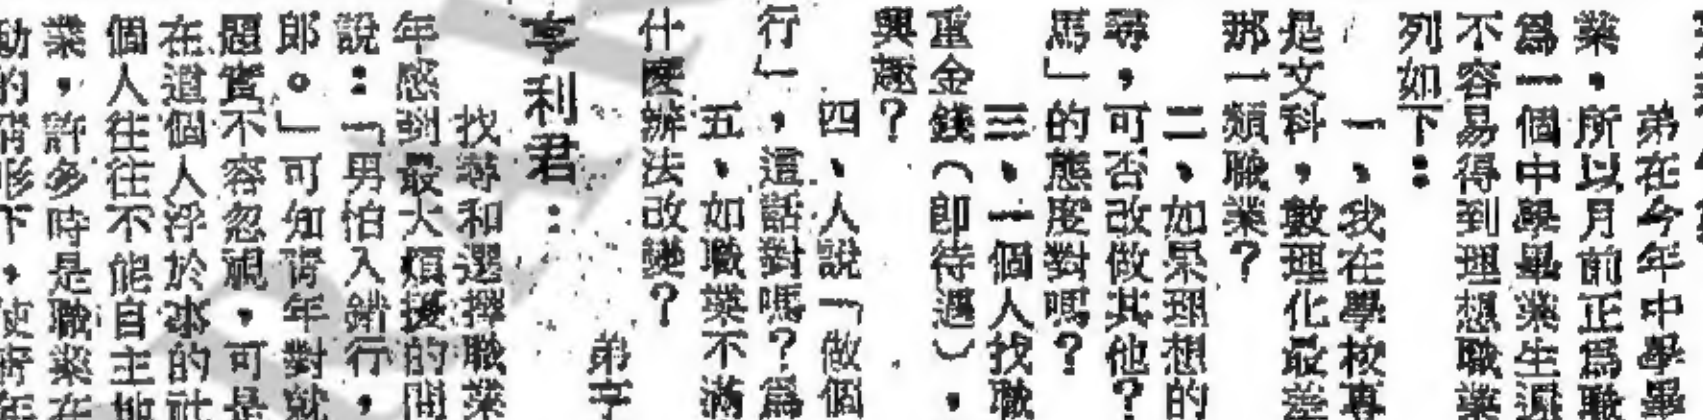 弟在今年中學畢
業，所以月前正爲職
爲一個中學畢業生還
不容易得到理想職業
列如下：
一、我在學校專
是文科，數理化最差
那一類職業？
二、如果理想的
尋，可否改做其他？
馬」的態度對嗎？
三、一個人找職
重金錢（卽待遇），
興趣？
四、人說「做個
行」，這話對嗎？爲
五、如職業不滿
什麼辦法改變？
弟亨
亨利君：
找尋和選擇職業
年感到最大煩擾的問
說：「男怕入錯行，
郎。」可知靑年對就
題實不容忽視，可是
在這個人浮於事的社
個人往往不能自主地
業，許多時是職業在
動的情形下，使靑年